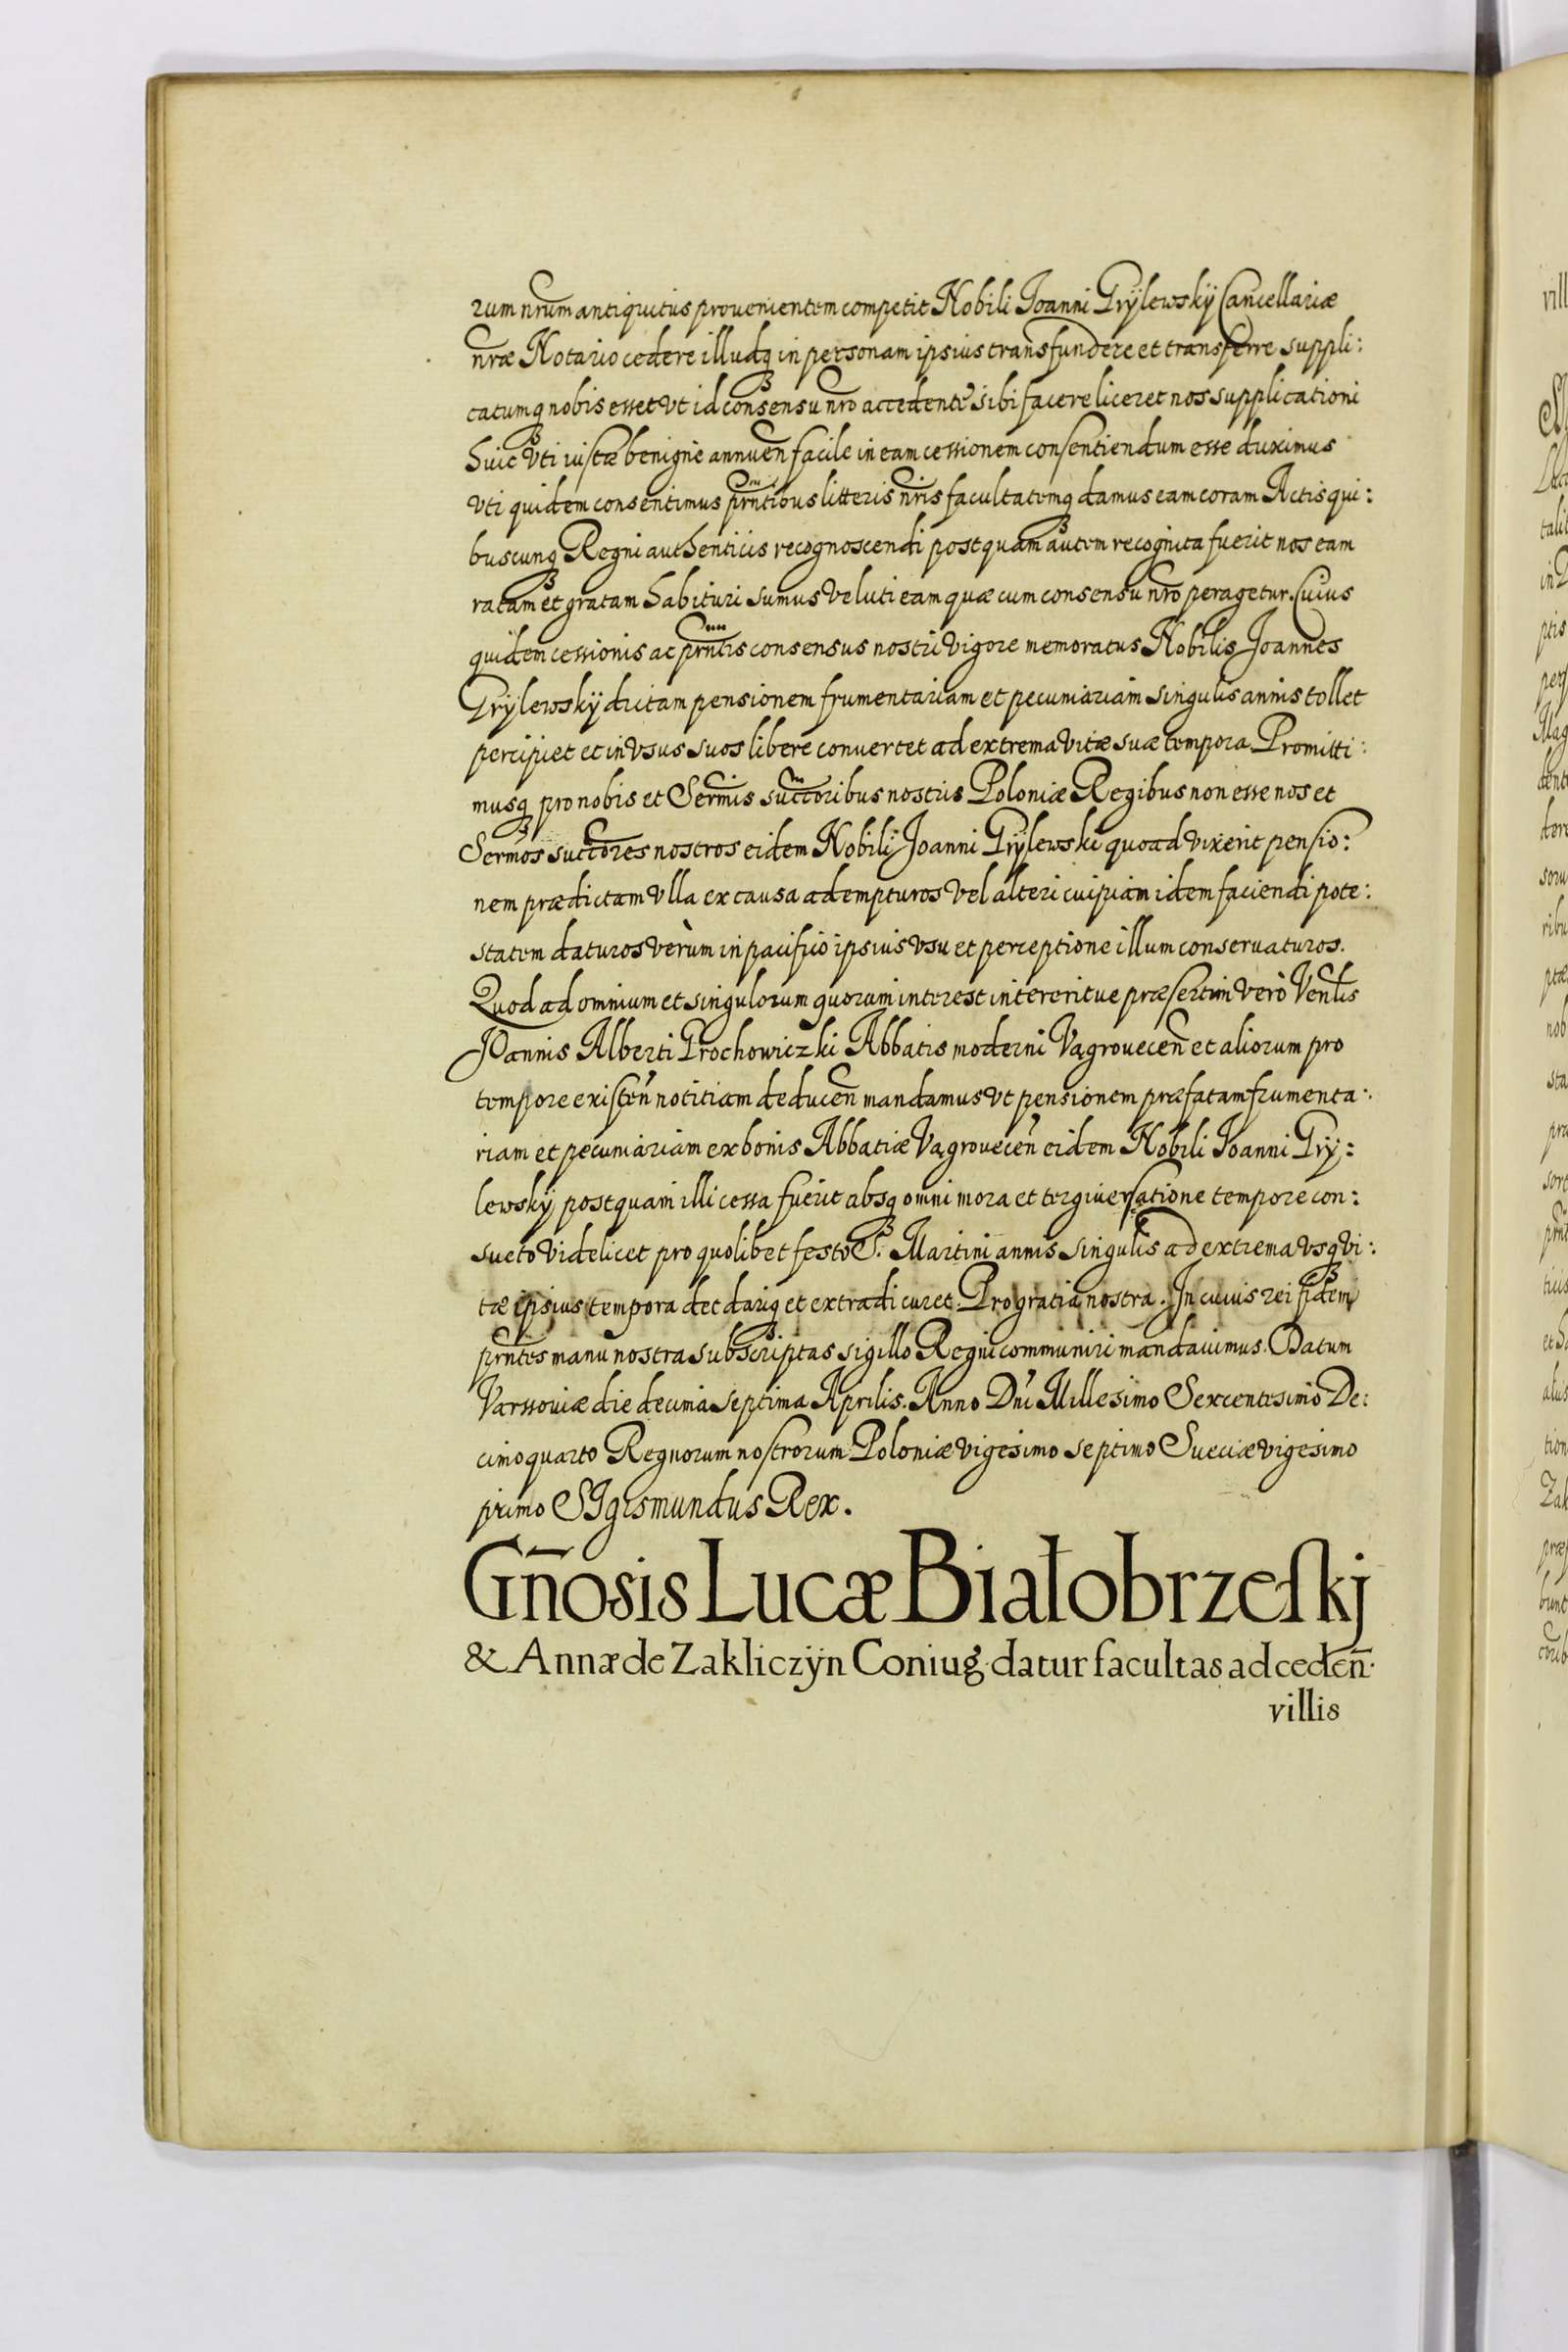 rum nrum antiquitus prouenientem competit Nobili Ioanni Trÿlewskÿ Cancellariæ
nræ Notario cedere illudq in personam ipsius transfundere et transferre suppli:
catumq nobis esset vt id consensu nro accedente sibi facere liceret nos supplicationi
huic vti iustæ benigne annuen facile in eam cessionem consentiendum esse duximus
vti quidem consentimus prntibus litteris nris facultatemq damus eam coram Actis qui:
buscunq Regni authenticis recognoscendi postquam autem recognita fuerit nos eam
ratam et gratam habituri sumus veluti eam quæ cum consensu nro peragetur. Cuius
quidem cessionis ac prntis consensus nostri vigore memoratus Nobilis Joannes
Trÿlewskÿ dictam pensionem frumentariam et pecuniariam singulis annis tollet
percipiet et in vsus suos libere conuertet ad extrema vitæ suæ tempora. Promitti:
musq pro nobis et Sermis succoribus nostris Poloniæ Regibus non esse nos et
Sermos succores nostros eidem Nobili Joanni Trÿlewski quoad vixerit pensio:
nem prædictam vlla ex causa adempturos vel alteri cuipiam idem faciendi pote:
statem daturos verùm in pacifico ipsius vsu et perceptione illum conseruaturos.
Quod ad omnium et singulorum quorum interest intereritue præsertim verò Venlis
Joannis Alberti Prochowiczki Abbatis moderni Vągrouecen et aliorum pro
tempore existen notitiam deducen mandamus vt pensionem præfatam frumenta:
riam et pecuniariam ex bonis Abbatiæ Vągrouecen eidem Nobili Ioanni Trÿ:
lewskÿ postquam illi cessa fuerit absq omni mora et tergiuersatione tempore con:
sueto videlicet pro quolibet festo S. Martini annis singulis ad extrema vsq vi:
tæ ipsius tempora det dariq et extradi curet. Pro gratia nostra. In cuius rei fidem
prntes manu nostra subscriptas sigillo Regni communiri mandauimus. Datum
Varssouiæ die decima septima Aprilis. Anno Dni Millesimo Sexcentesimo De:
cimo quarto Regnorum nostrorum Poloniæ vigesimo septimo Sueciæ vigesimo
primo SIgismundus Rex.
Gnosis Lucæ Białobrzeſkj
& Annæ de Zakliczÿn Coniug. datur facultas ad ceden.
villis